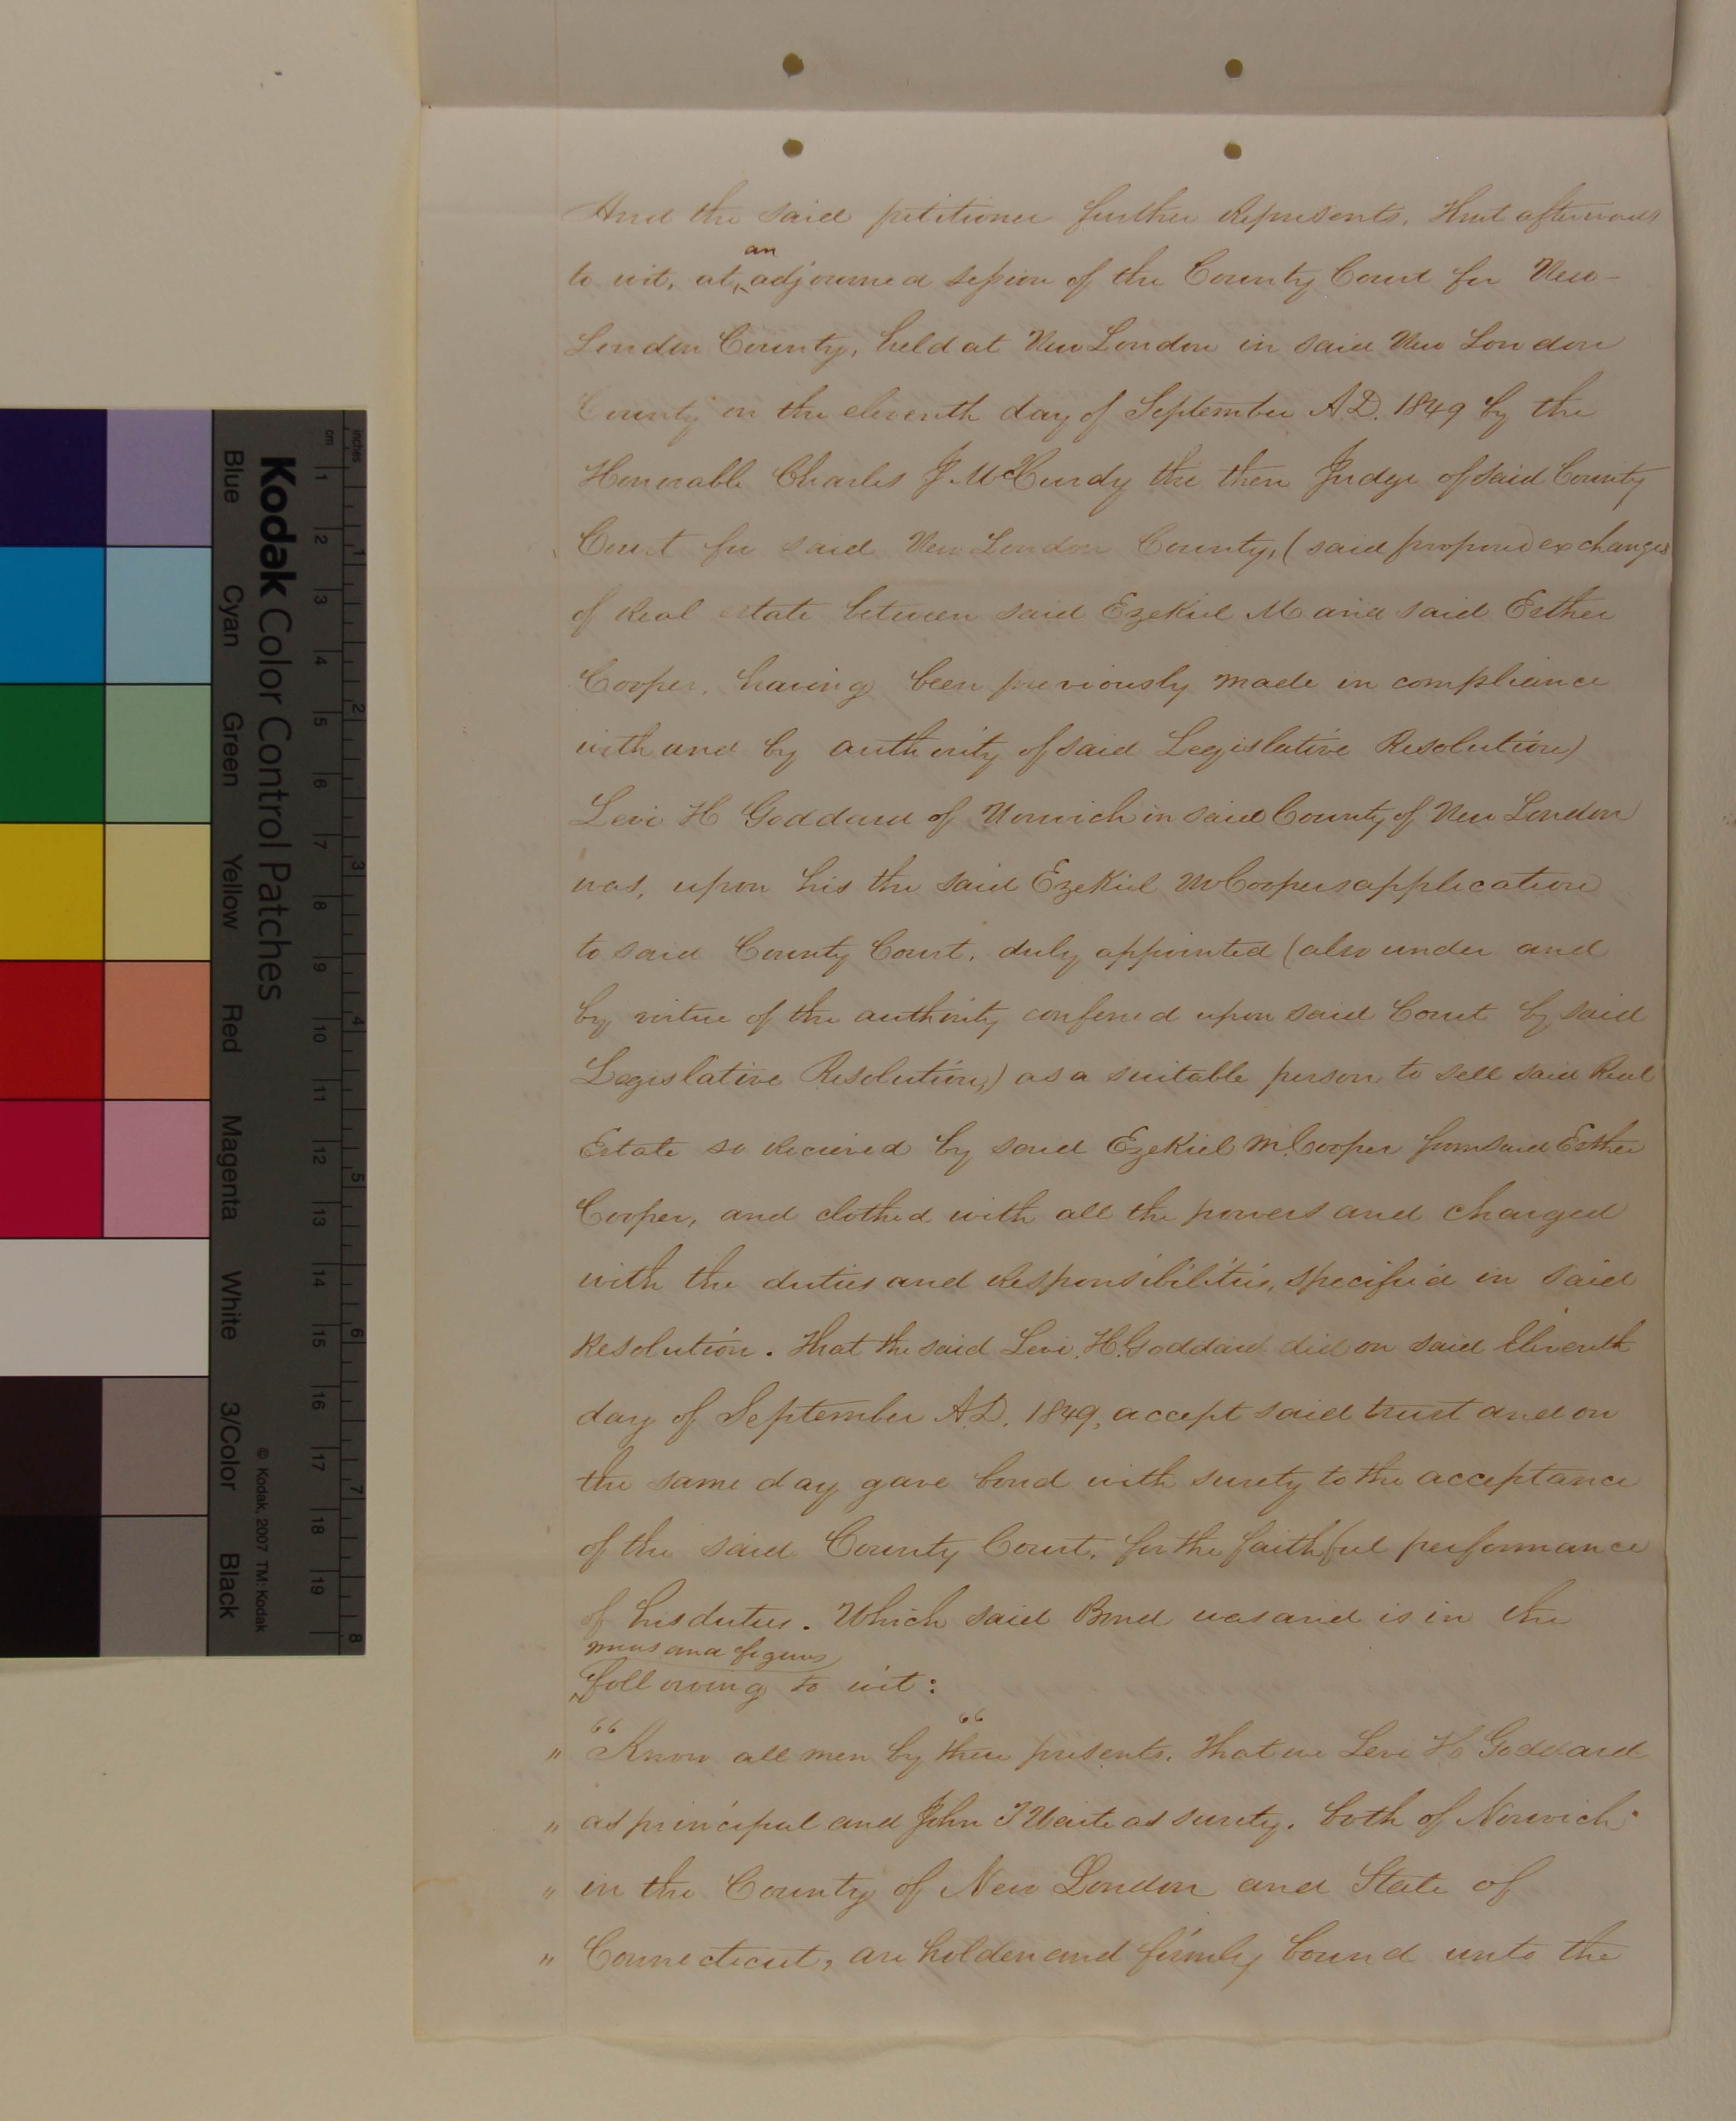 And the said petitioner further Represents, that afterwards
an
to wit, at adjourned session of the County Court for New-
London County, held at New London in said New London
County on the eleventh day of September A.D. 1849 by the
Honorable Charles J McCurdy the then Judge of said County
Court for said New London County, (said proposed exchanges
of Real estate between said Ezekiel M and said Esther
Cooper, having been previously made in compliance
with and by authority of said Legislative Resolution)
Levi H Goddard of Norwich in said County of New London
was, upon his the said Ezekiel M Coopers application
to said County Court, duly appointed (also under and
by virtue of the authority conferred upon said Court by said
Legislative Resolution,) as a suitable person to sell said Real
Estate so Recieved by said Ezekiel M. Cooper from said Esther
Cooper, and clothed with all the powers and charged
with the duties and Responsibilities, specified in said
Resolution. That the said Levi. H. Goddard did on said Eleventh
day of September A.D. 1849, accept said trust and on
the same day gave bond with surety to the acceptance
of the said County Court, for the faithful performance
of his duties. Which said Bond was and is in the
words and figures
following to wit:
" "Know all men by these presents. That we Levi H Goddard
" as principal and John T Waite as surety. both of Norwich
" in the County of New London and State of
" Connecticut, are holden and firmly bound unto the
Kodak Color Control Patches
Blue Cyan Green Yellow Red Magenta White 3/Color Black
© Kodak, 2007 TM: Kodak
inches 1 2 3 4 5 6 7 8
cm 1 2 3 4 5 6 7 8 9 10 11 12 13 14 15 16 17 18 19